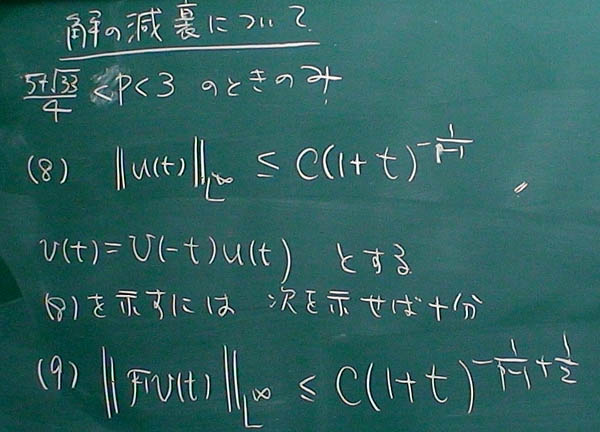 解の減衰について
(5+√33)/4 < p < 3 のときのみ
(8) ‖u(t)‖_{L^∞} ≤ C(1+t)^{-1/(p-1)}
v(t) = U(-t)u(t) とする
(8)を示すには 次を示せば十分
(9) ‖Fv(t)‖_{L^∞} ≤ C(1+t)^{-1/(p-1)+1/2}